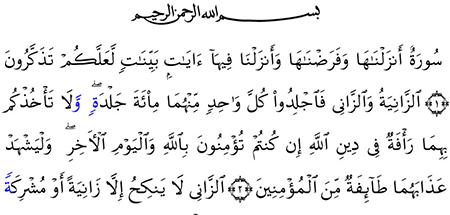 بسم الله الرحمن الرحيم
سُورَةٌ أَنزَلْنَٰهَا وَفَرَضْنَٰهَا وَأَنزَلْنَا فِيهَآ ءَايَٰتٍۭ بَيِّنَٰتٍ لَّعَلَّكُمْ تَذَكَّرُونَ
﴿١﴾ ٱلزَّانِيَةُ وَٱلزَّانِى فَٱجْلِدُوا۟ كُلَّ وَٰحِدٍ مِّنْهُمَا مِا۟ئَةَ جَلْدَةٍ ۖ وَّلَا تَأْخُذْكُم
بِهِمَا رَأْفَةٌ فِى دِينِ ٱللَّهِ إِن كُنتُمْ تُؤْمِنُونَ بِٱللَّهِ وَٱلْيَوْمِ ٱلْأَخِرِ ۖ وَلْيَشْهَدْ
عَذَابَهُمَا طَآئِفَةٌ مِّنَ ٱلْمُؤْمِنِينَ ﴿٢﴾ ٱلزَّانِى لَا يَنكِحُ إِلَّا زَانِيَةً أَوْ مُشْرِكَةً